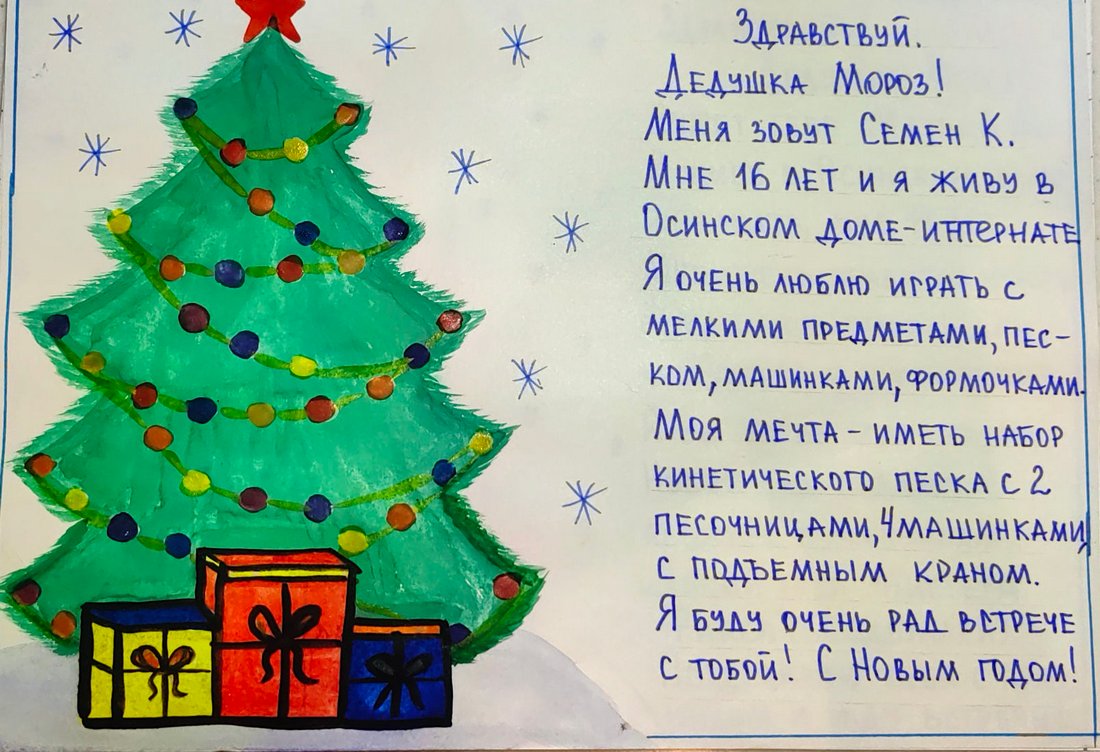 Здравствуй.
Дедушка Мороз!
Меня зовут Семен К.
Мне 16 лет и я живу в
Осинском доме-интернате
Я очень люблю играть с
мелкими предметами, пес-
ком, машинками, формочками.
Моя мечта - иметь набор
кинетического песка с 2
песочницами, 4 машинками,
с подъемным краном.
Я буду очень рад встрече
с тобой! С Новым годом!